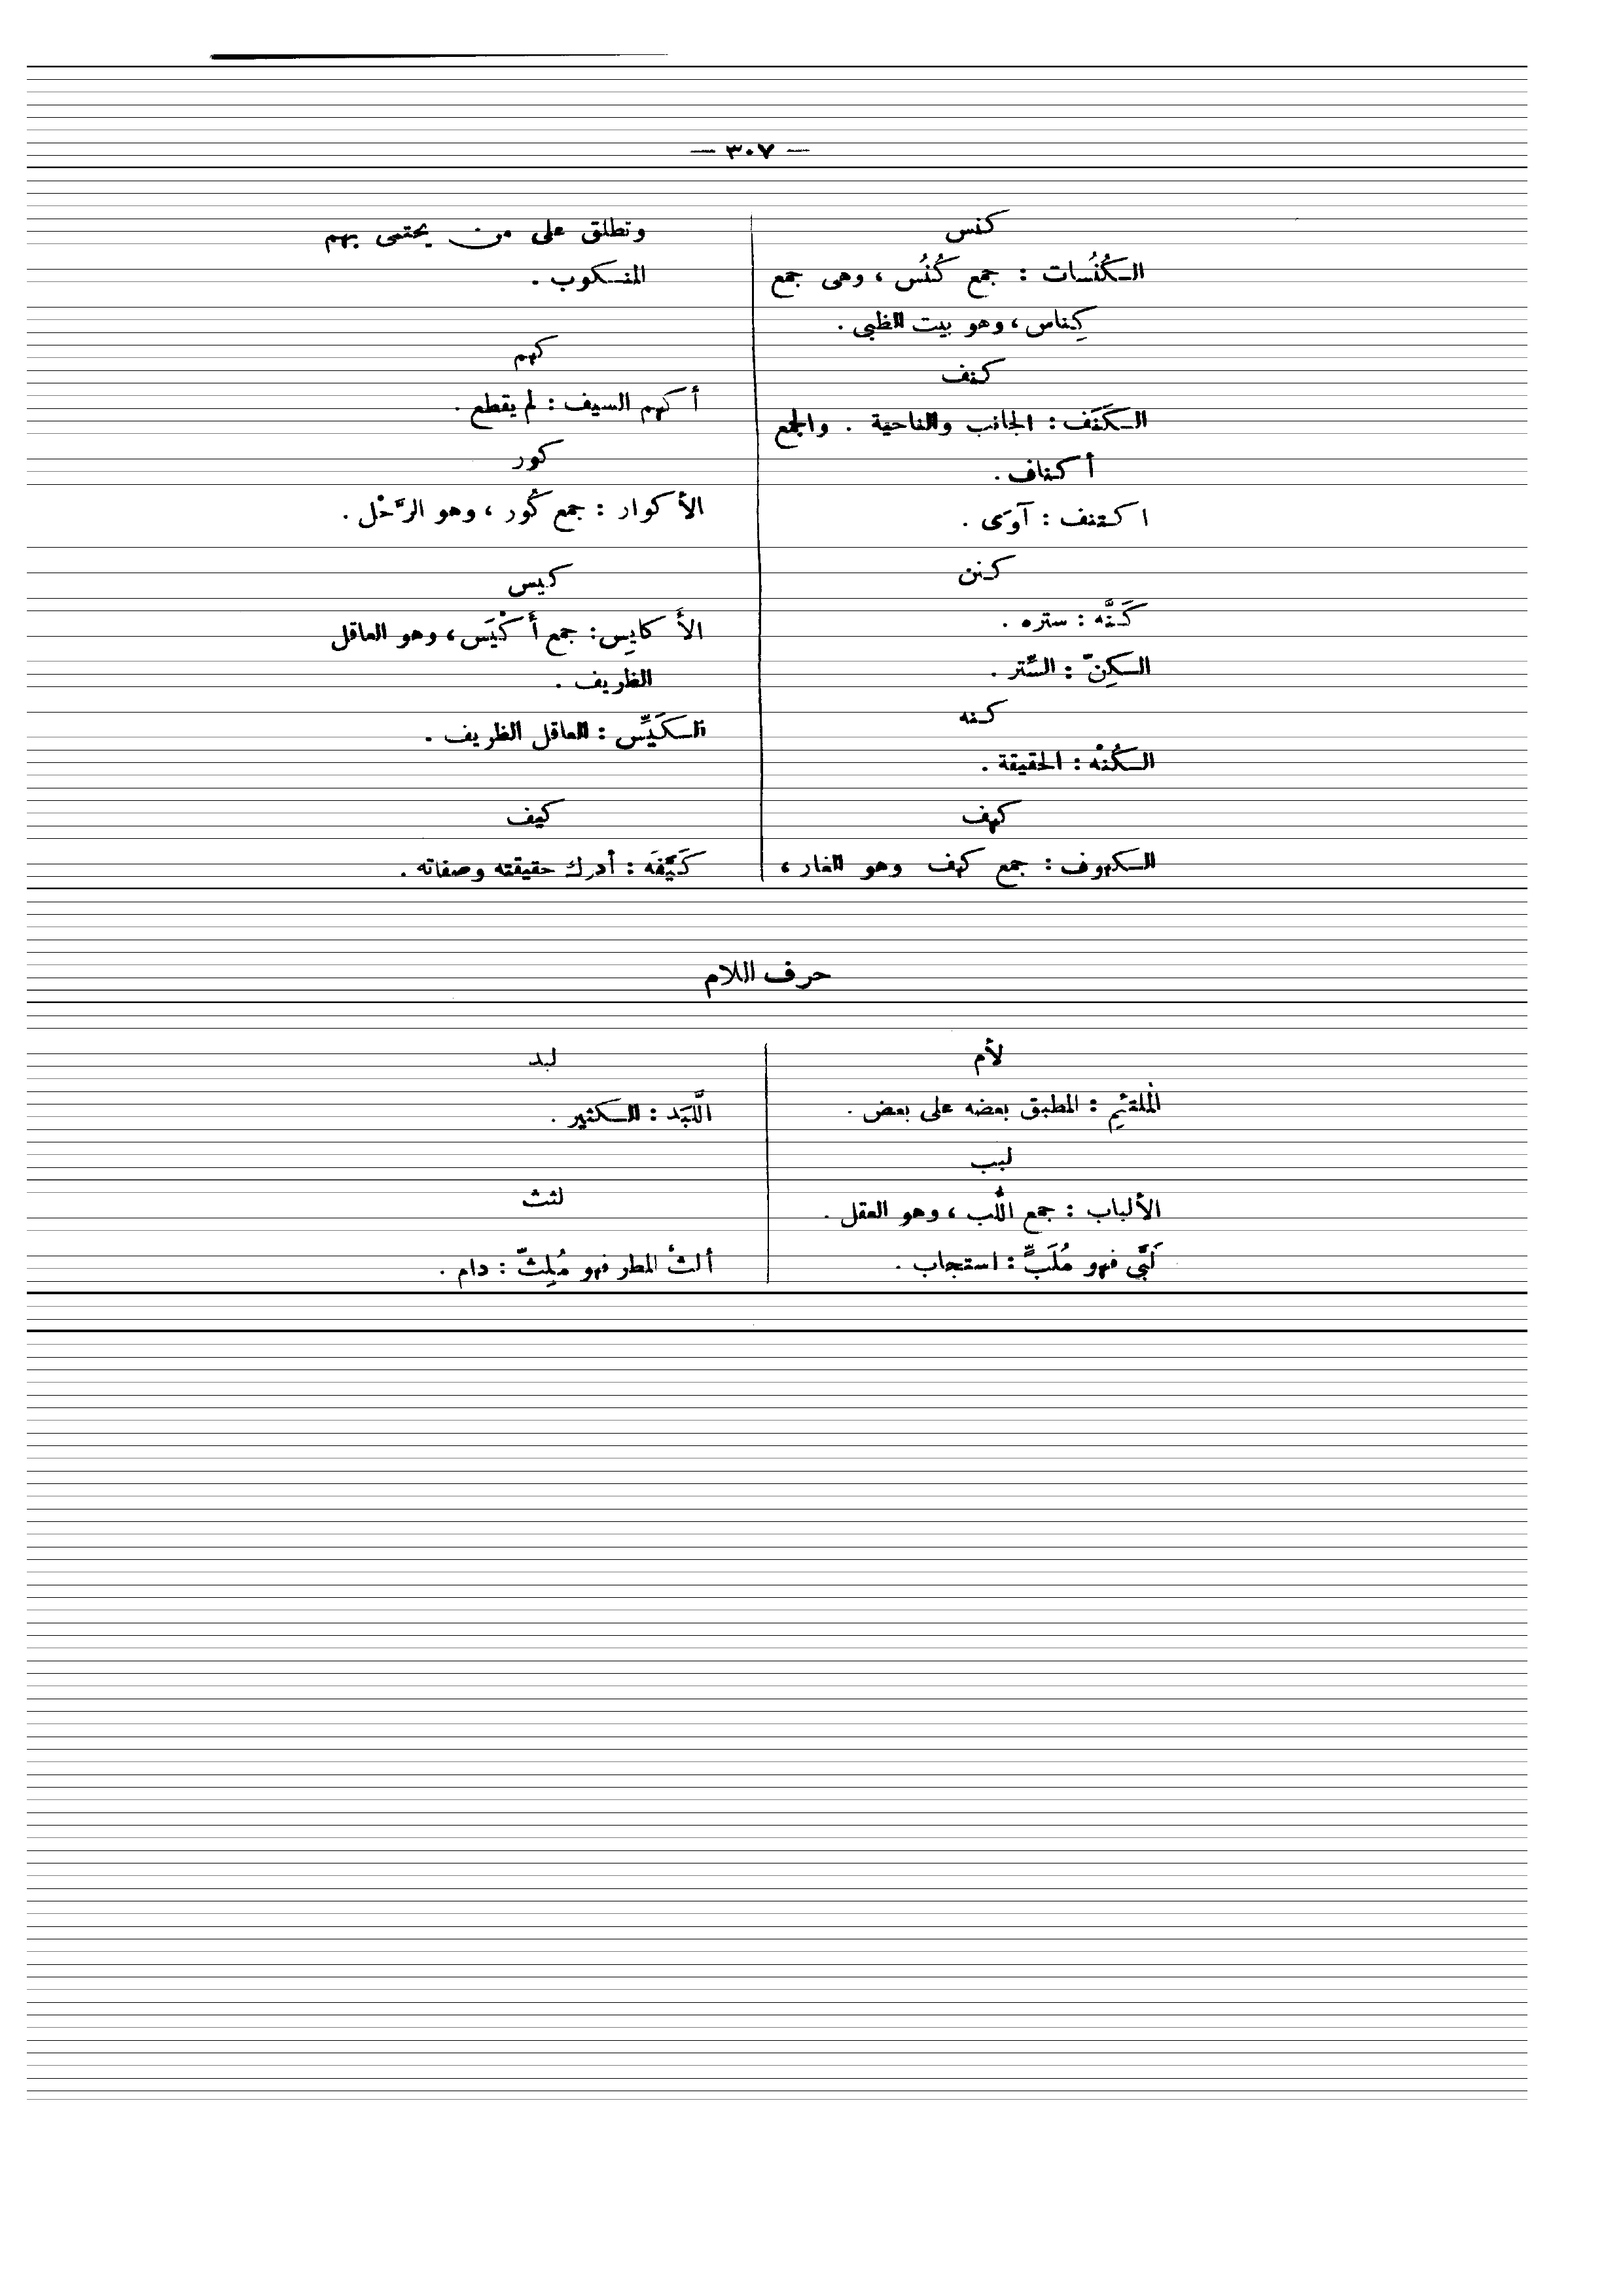 — ٣٠٧ —
كنس
الكُنُسات : جمع كُنُس ، وهى جمع
كِناس ، وهو بيت الظبى .
كنف
الكَنَف : الجانب والناحية . والجمع
أكناف .
اكتنف : آوَى .
كنن
كَنَّه : ستره .
الكِنّ : السِّتر .
كنه
الكُنْه : الحقيقة .
كهف
الكهوف : جمع كهف وهو الغار ،
وتطلق على من يحتمى بهم
المنكوب .
كهم
أكهم السيف : لم يقطع .
كور
الأكوار : جمع كُور ، وهو الرَّحْل .
كيس
الأَكايِس : جمع أَكْيَس ، وهو العاقل
الظريف .
الكَيِّس : العاقل الظريف .
كيف
كَيَّفَه : أدرك حقيقته وصفاته .
حرف اللام
لأم
المُلتئِم : المطبق بعضه على بعض .
لبب
الألباب : جمع اللُّب ، وهو العقل .
لَبَّى فهو مُلَبٍّ : استجاب .
لبد
اللَّبَد : الكثير .
لثث
ألثَّ المطر فهو مُلِثّ : دام .